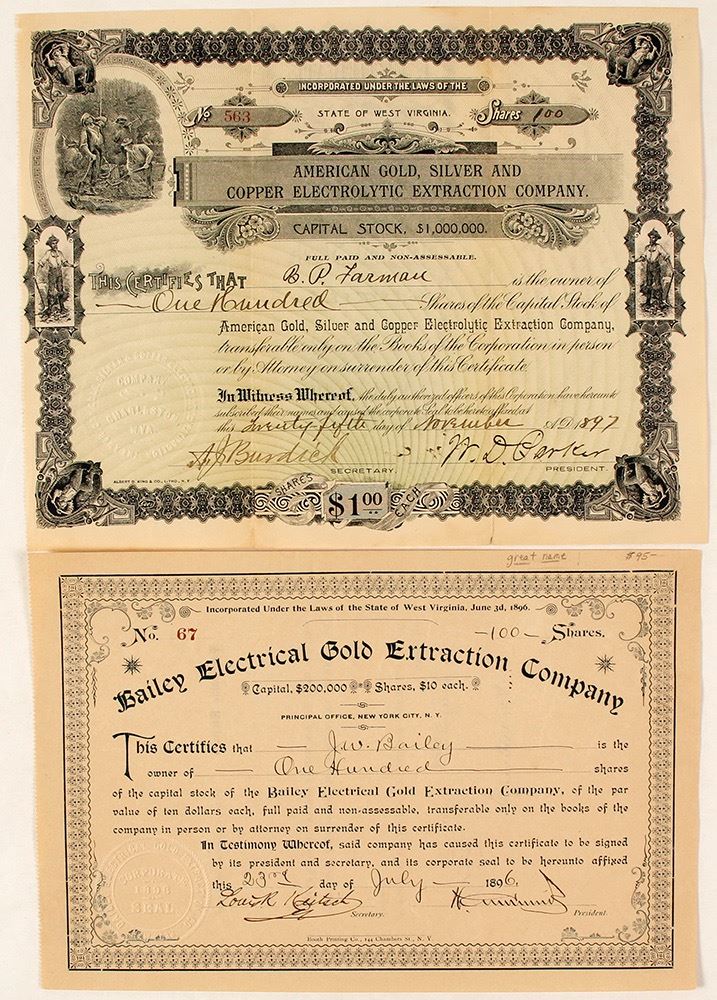 INCORPORATED UNDER THE LAWS OF THE
No 563 STATE OF WEST VIRGINIA. Shares 100
AMERICAN GOLD, SILVER AND
COPPER ELECTROLYTIC EXTRACTION COMPANY.
CAPITAL STOCK, $1,000,000.
FULL PAID AND NON-ASSESSABLE.
THIS CERTIFIES THAT B. P. Farman is the owner of
One Hundred Shares of the Capital Stock of
American Gold, Silver and Copper Electrolytic Extraction Company,
transferable only on the Books of the Corporation in person
or by Attorney on surrender of this Certificate.
In Witness Whereof, the duly authorized officers of this Corporation have hereunto
subscribed their names and caused the corporate Seal to be hereto affixed at
this twenty fifth day of November A.D. 1897
A J Burdick W. D. Parker
SECRETARY. PRESIDENT.
ALBERT B. KING & CO., LITHO., N.Y.
SHARES $1.00 EACH
great name $95-
Incorporated Under the Laws of the State of West Virginia, June 3d, 1896.
No. 67 -100- Shares.
Bailey Electrical Gold Extraction Company
Capital, $200,000 Shares, $10 each.
PRINCIPAL OFFICE, NEW YORK CITY, N. Y.
This Certifies that J. W. Bailey is the
owner of One Hundred shares
of the capital stock of the Bailey Electrical Gold Extraction Company, of the par
value of ten dollars each, full paid and non-assessable, transferable only on the books of the
company in person or by attorney on surrender of this certificate.
In Testimony Whereof, said company has caused this certificate to be signed
by its president and secretary, and its corporate seal to be hereunto affixed
this 23rd day of July 1896.
Secretary. President.
CORPORATE
1896
SEAL
Booth Printing Co., 144 Chambers St., N. Y.